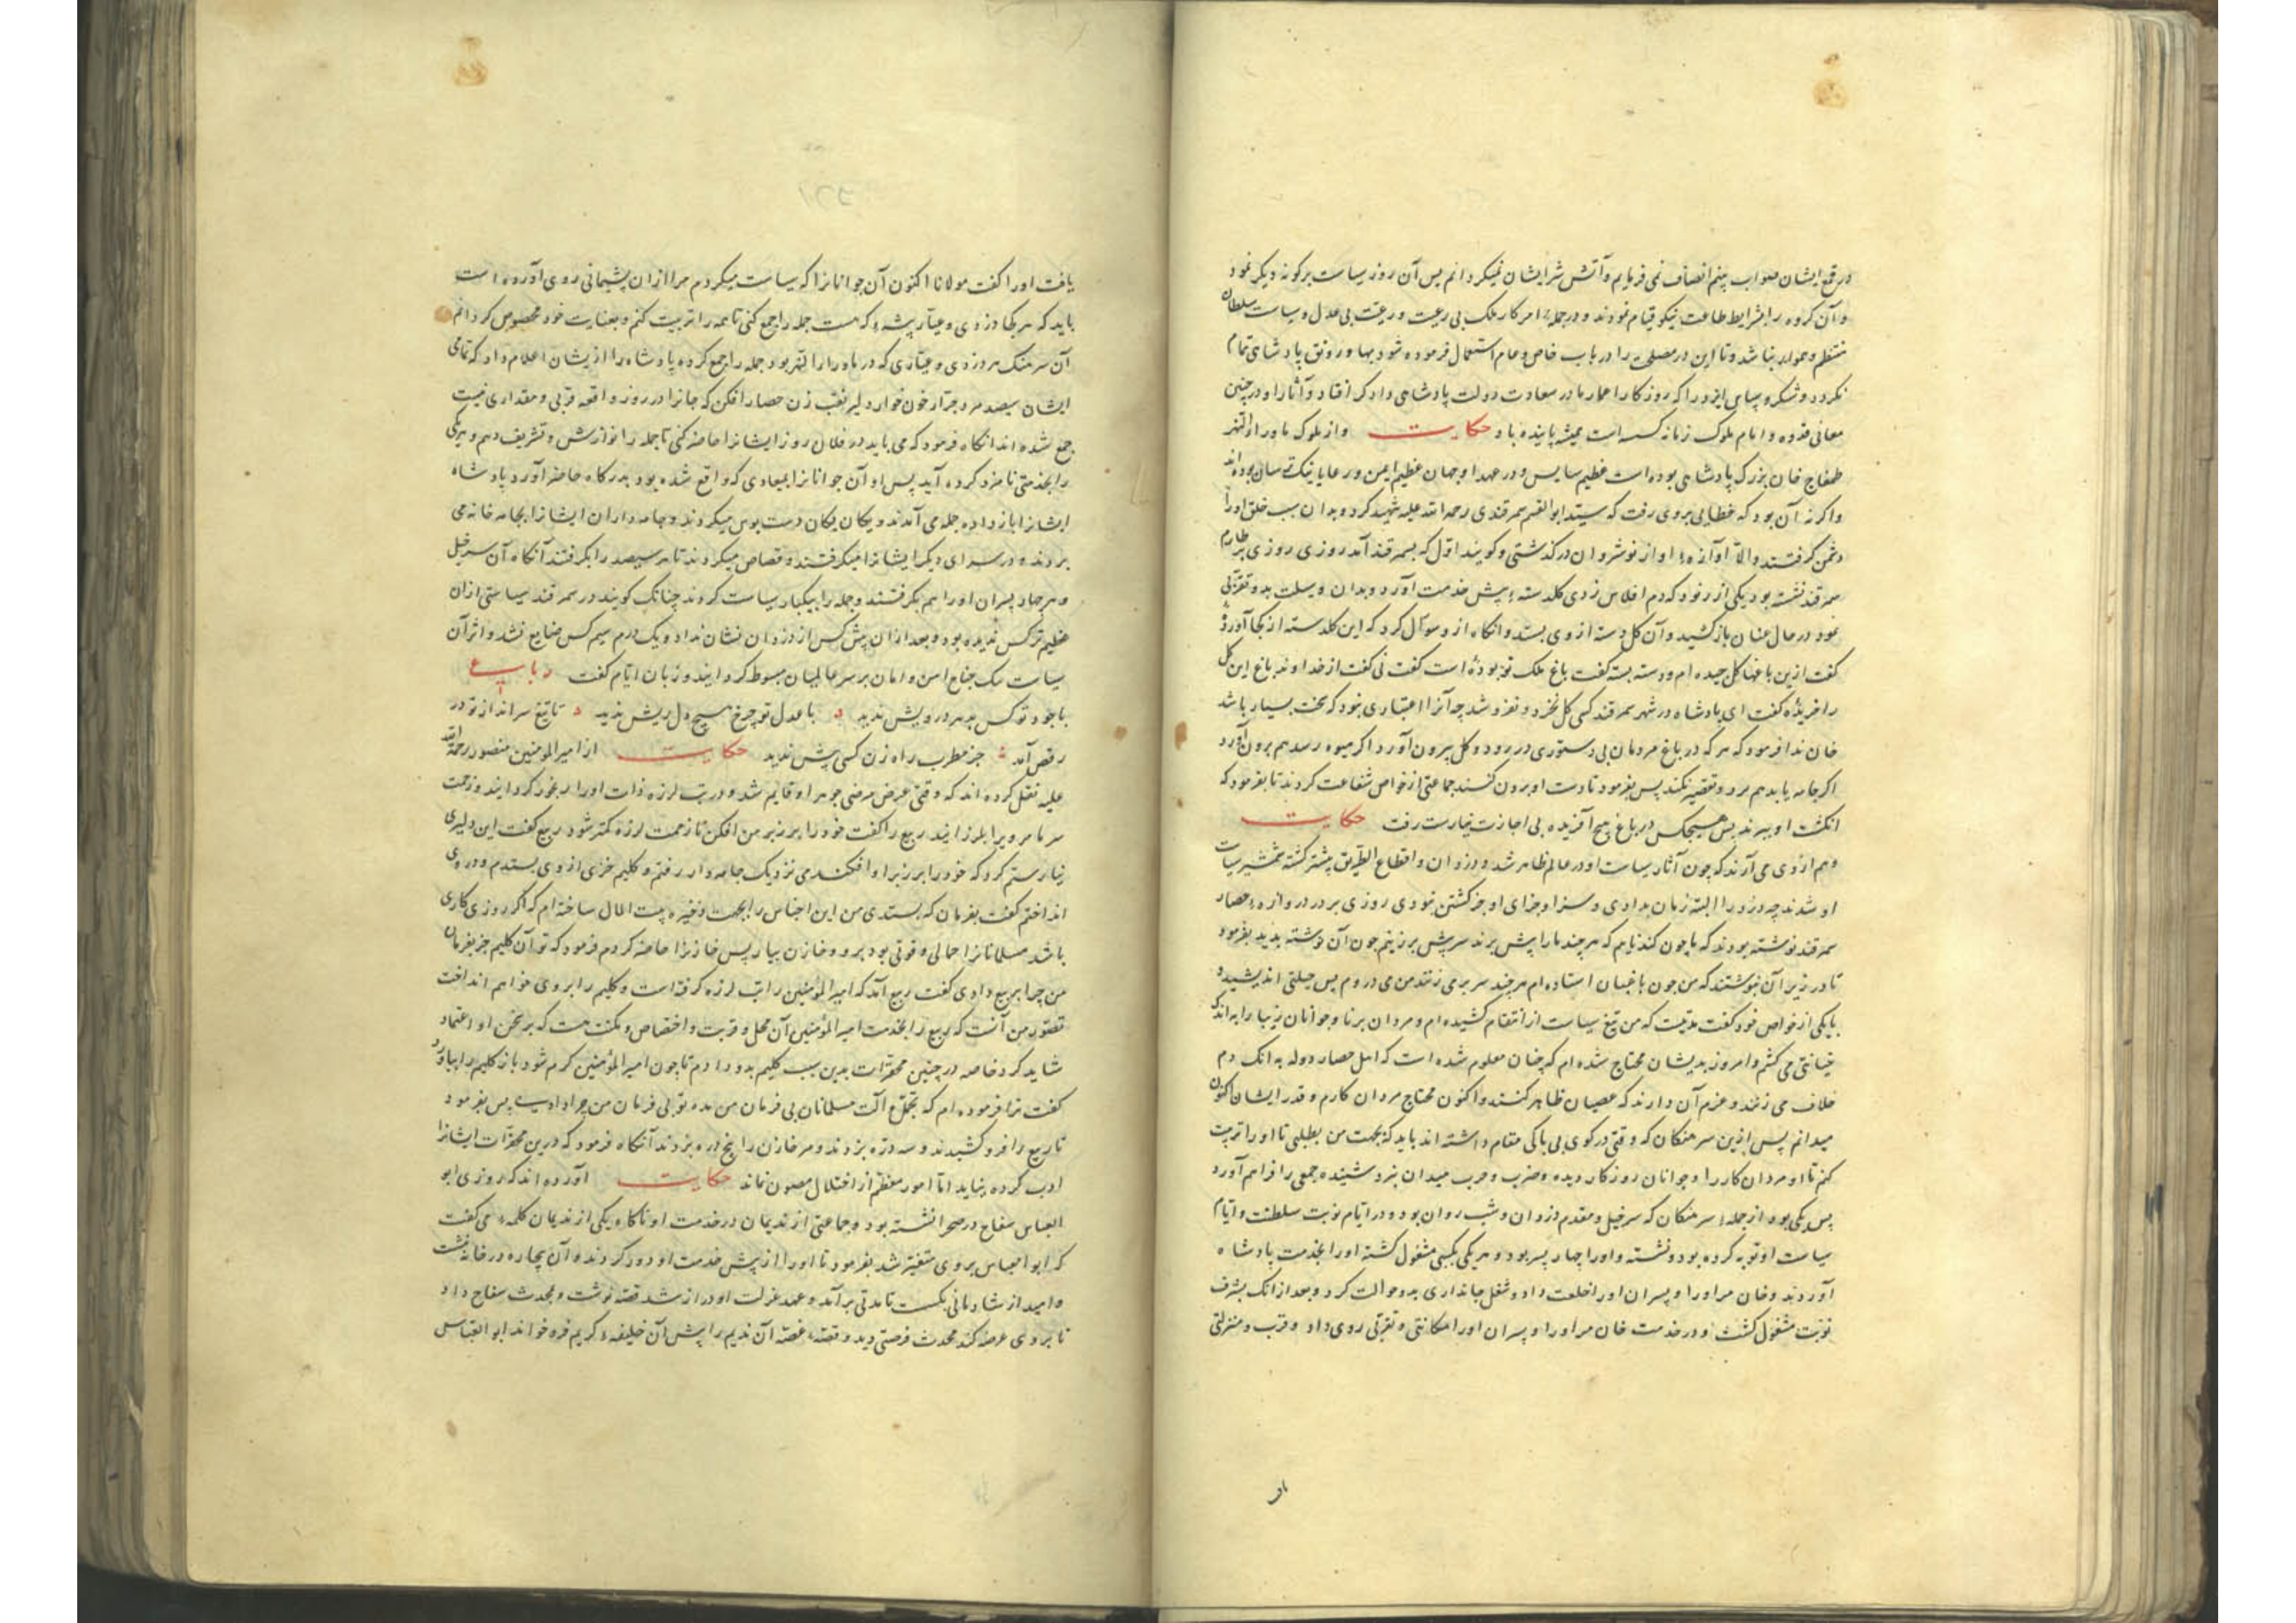 در قمع ایشان صواب بینم انصاف نمی فرمایم و آتش شر ایشان نمیگردانم پس آن روز سیاست برگونه دیگر نمود
و آن گروه را بشرایط طاعت نیکو قیام نمودند و در جمله امر کار ملک بی رعیت و رعیت بی عدل و سیاست سلطان
منتظم و هموار نباشد و تا این در مصلحت را در باب خاص و عام استعمال فرموده شود بها و رونق پادشاهی تمام
نگردد و شکر و سپاس ایزد را که روزگار اعمار ما در سعادت دولت پادشاهی دادگر افتاد و آثار او در چنین
معانی فزوده و ایام ملوک زمانه است همیشه پاینده باد حکایت و از ملوک ماورا النهر
طمغاج خان بزرگ پادشاهی بوده است عظیم سایس و در عهد او جهان عظیم ایمن و رعایا نیک ترسان بوده اند
و اگر نه آن بود که خطایی بر وی رفت که سید ابو القسم سمرقندی رحمه الله علیه شهید کرد و بدان سبب خلق او را
دشمن گرفتند و الا آوازهٔ او از نوشروان در گذشتی و گویند اول که بسمرقند آمد روزی روزی بر طارم
سمرقند نشسته بود یکی از رنود که دم افلاس زدی گلدستهٔ پیش خدمت آورد و بدان وسیلت بدو تقربی
نمود در حال عنان باز کشید و آن گل دسته از وی بستد و انگاه از و سوال کرد که این گلدسته از کجا آوردی
گفت ازین باغها گل چیده ام و دسته بسته گفت باغ ملک تو بوده است گفت نی گفت از خداوند باغ این گل
را خریدهٔ گفت ای پادشاه در شهر سمرقند کسی گل نخرد و نفروشد چه آنرا اعتباری نبود که سخت بسیار باشد
خان ندا فرمود که هر که در باغ مردمان بی دستوری در رود و گل بیرون آورد اگر میوه رسد هم برون آورد
اگر جامه یابد هم برد و تقصیر نکند پس بفرمود تا دست او برون کنند جماعتی از خواص شفاعت کردند تا بفرمود که
انگشت او ببرند پس هیچکس در باغ هیچ آفریده بی اجازت نیارست رفت حکایت
و هم از وی می آرند که چون آثار سیاست او در عالم ظاهر شد و دزدان و قطاع الطریق بیشتر کشته شمشیر سیاست
او شدند چه دزد را البته زمان ندادی و سزا و جزای او جز کشتن نبودی روزی بر در دروازهٔ حصار
سمرقند نوشته بودند که ما چون گندناایم که هر چند ما را بیش برند سر بیش برزنیم چون آن نوشته بدید بفرمود
تا در زیر آن نبوشتند که من چون باغبان استاده ام هر چند سر بر می زنند من می دروم پس حیلتی اندیشید و
با یکی از خواص خود گفت مدتیست که من تیغ سیاست از انتقام کشیده ام و مردان برنا و جوانان زیبا را به اندک
خیانتی می کشم و امروز بدیشان محتاج شده ام که چنان معلوم شده است که اهل حصار دوله به انک دم
خلاف می زنند و عزم آن دارند که عصیان ظاهر کنند و اکنون محتاج مردان کارم و قدر ایشان اکنون
میدانم پس ازین سرهنگان که وقتی در کوی بی باکی مقام داشته اند باید که بجهت من بطلبی تا او را تربیت
کنم تا او مردان کار را و جوانان روزگار دیده و ضرب و حرب میدان نبرد شنیده جمعی را فراهم آورد
پس یکی بود از جملهٔ سرهنگان که سرخیل و مقدم دزدان و شب روان بود و در ایام نوبت سلطنت و ایام
سیاست او توبه کرده بود و نشسته و او را چهار پسر بود و هر یکی بکسبی مشغول گشته او را بخدمت پادشاه
آوردند و خان مر او را و پسران او را خلعت داد و شغل جانداری بدو حوالت کرد و بعد از انک بشرف
نوبت مشغول گشت و در خدمت خان مر او را و پسران او را مکانتی و تقربتی روی داد و قرب و منزلتی
یافت او را گفت مولانا اکنون آن جوانانرا که سیاست میکردم مرا از ان پشیمانی روی آورده است
باید که هر کجا دزدی و عیار پیشهٔ که هست جمله را جمع کنی تا همه را تربیت کنم و بعنایت خود مخصوص گردانم
آن سرهنگ هر دزدی و عیاری که در ماورا النهر بود جمله را جمع کرده پادشاه را از ایشان اعلام داد که تمامی
ایشان سیصد مرد جرار خون خوار دلیر نقب زن حصار افکن که جانرا در روز واقعه قربی و مقداری نیست
جمع شده اند انگاه فرمود که می باید در فلان روز ایشانرا حاضر کنی تا جمله را نوازش و تشریف دهم و هر یکی
را بخدمتی نامزد کرده آید پس او آن جوانانرا بمیعادی که واقع شده بود بدرگاه حاضر آورد پادشاه
ایشانرا بار داده جمله می آمدند و یکان یکان دست بوس میکردند و جامه داران ایشانرا بجامه خانه می
بردند و در سرای دیگر ایشانرا میگرفتند و قصاص میکردند تا هر سیصد را بگرفتند آنگاه آن سرخیل
و هر چهار پسران او را هم بگرفتند و جمله را بیکبار سیاست کردند چنانک گویند در سمرقند سیاستی از ان
عظیم تر کس ندیده بود و بعد از ان پیش کس از دزدان نشان نداد و یک درم سیم کس ضایع نشد و اثر آن
سیاست یک جناح امن و امان بر سر عالمیان مبسوط گردانید و زبان ایام گفت رباعی
با جود تو کس بدهر درویش ندید با عدل تو چرخ هیچ دل ریش ندید تا تیغ سر انداز تو در
رقص آمد جز مطرب راه زن کسی پیش ندید حکایت از امیر المومنین منصور رحمه الله
علیه نقل کرده اند که وقتی عرض مرضی جوهر او قایم شد و در تب لرزه ذات او را مرغود گردانید و زحمت
سرما مر ویرا بلرزانید ربیع را گفت خود را بر زبر من افکن تا زحمت لرزه کمتر شود ربیع گفت این دلیری
نیارستم کرد که خود را بر زبر او افکندی نزدیک جامه دار رفتم و گلیم خزی از وی بستدم و در وی
انداختم گفت بفرمان که بستدی من این اجناس را بجهت ذخیره بیت المال ساخته ام که اگر روزی کاری
باشد مسلمانانرا حمالی و قوتی بود برو و خازن بیار پس خازنرا حاضر کردم فرمود که تو آن گلیم جز بفرمان
من چرا بربیع دادی گفت ربیع آمد که امیر المؤمنین را تب لرزه گرفته است و گلیم را بر وی خواهم انداخت
تصور من آنست که ربیع را بخدمت امیر المؤمنین آن محل و قربت و اختصاص و مکنت هست که بر سخن او اعتماد
شاید کرد خاصه در چنین محقرات بدین سبب گلیم بدو دادم تا چون امیر المؤمنین گرم شود باز گلیم را بیاورد
گفت ترا فرموده ام که بتجمل و آلت مسلمانان بی فرمان من مده تو بی فرمان من چرا دادی پس بفرمود
تا ربیع را فرو کشیدند و سه دره بزدند و مر خازن را پنج دره بزدند آنگاه فرمود که درین محقرات ایشانرا
ادب کرده بباید تا امور معظم از اختلال مصون ماند حکایت آورده اند که روزی ابو
العباس سفاح در صحرا نشسته بود و جماعتی از ندیمان در خدمت او ناگاه یکی از ندیمان کلمهٔ می گفت
که ابو العباس بر وی متغیر شد بفرمود تا او را از پیش خدمت او دور کردند و آن بیچاره در خانه نشست
و امید از شادمانی بگسست تا مدتی برآمد و عهد عزلت او دراز شد قصه نوشت و بمحدث سفاح داد
تا بر وی عرضه کند محدث فرصتی دید و قصهٔ غصهٔ آن ندیم را پیش آن خلیفهٔ کریم فرو خواند ابو العباس